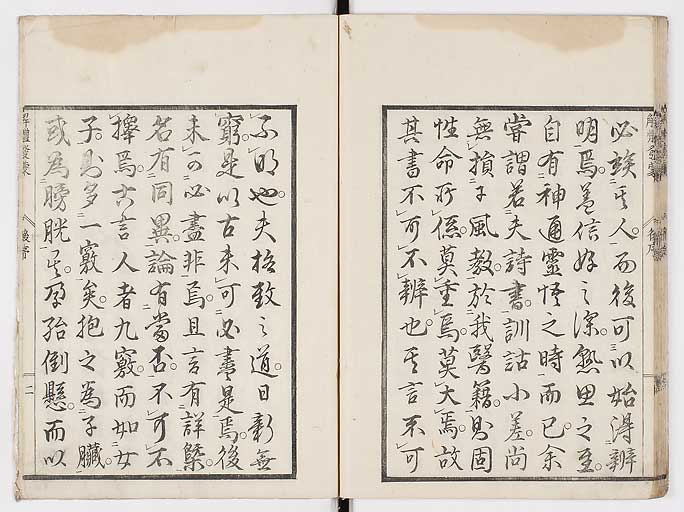 必竢其人而後可以始得辨
明焉蓋信好之深熟思之至
自有神通靈悟之時而已余
嘗謂若夫詩書訓詁小差尚
無損于風教於我醫籍則固
性命所係莫重焉莫大焉故
其書不可不辨也其言不可
不明也夫格致之道日新無
窮是以古来可必盡是焉後
未可必盡非焉且言有詳槩
名有同異論有當否不可不
擇焉古言人者九竅而如女
子則多一竅矣抱之為子臓
或為膀胱其胥殆倒懸而以
解體發蒙
後序
二